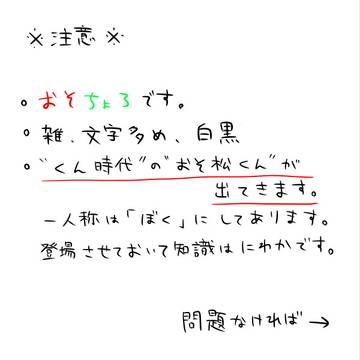 ※注意※
。おそちょろです。
。雑、文字多め、白黒
。"くん時代"の"おそ松くん"が
出てきます。
一人称は「ぼく」にしてあります。
登場させておいて知識はにわかです。
問題なければ→